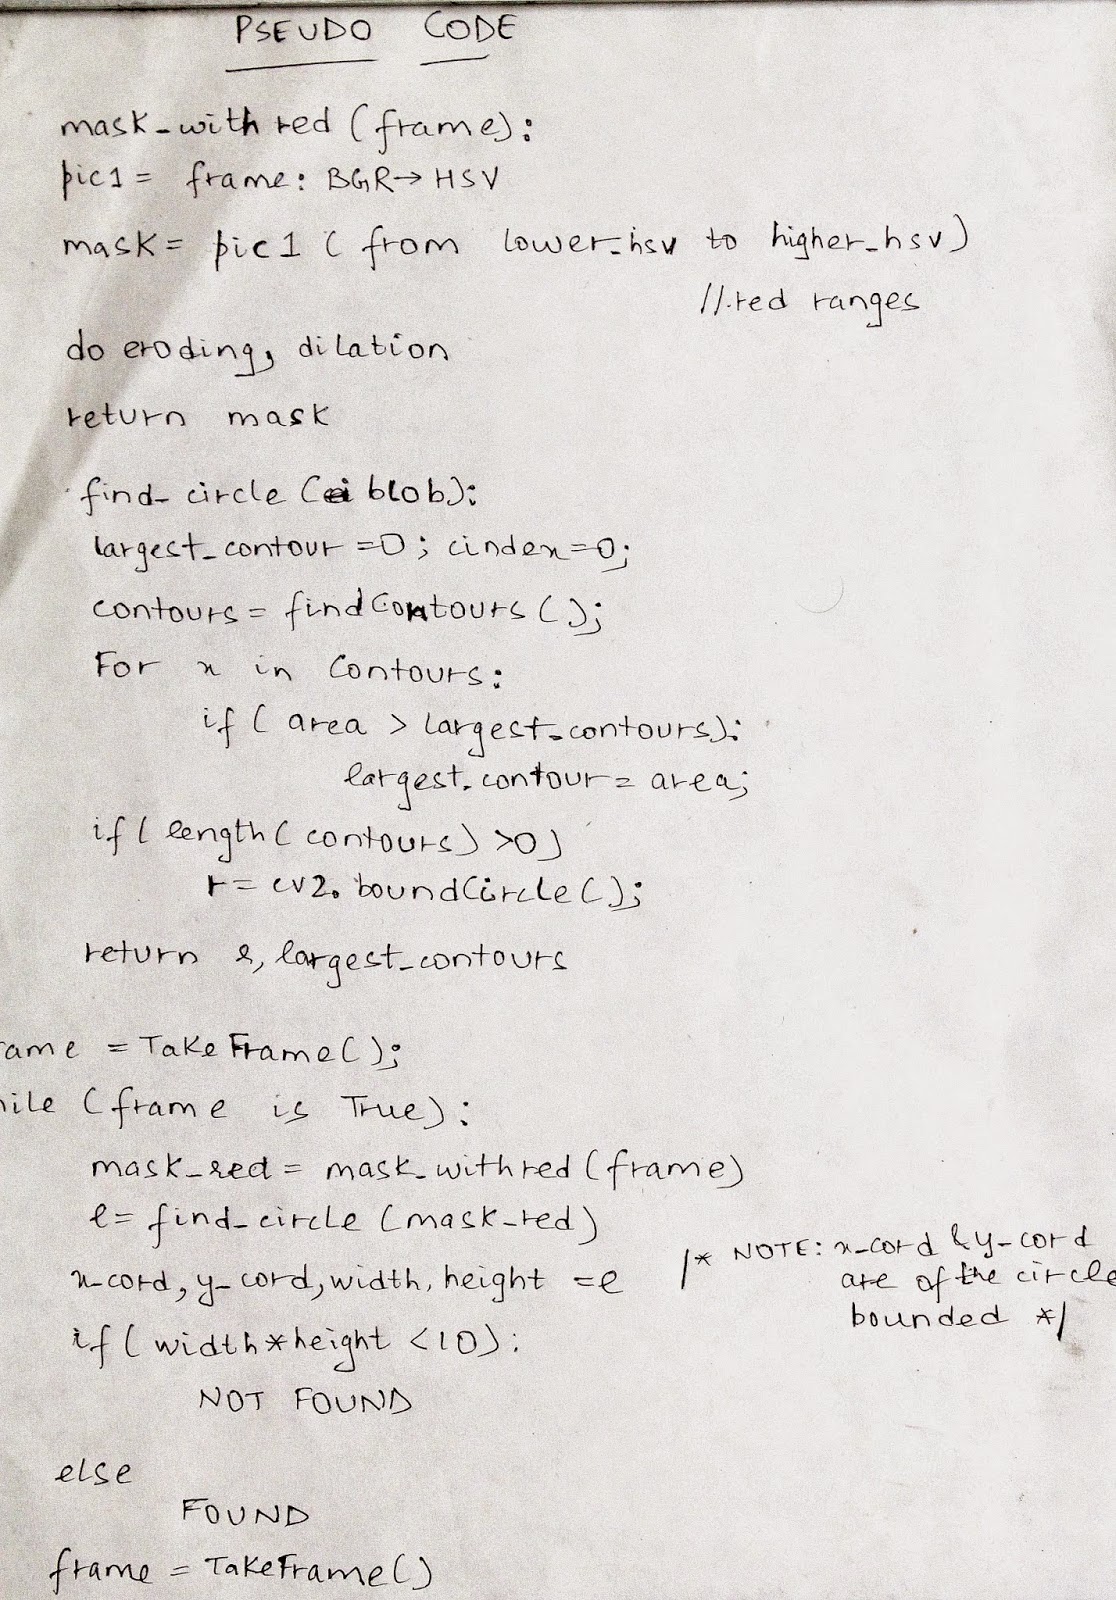 PSEUDO CODE
mask_with red (frame):
pic1 = frame: BGR→HSV
mask = pic1 (from lower_hsv to higher_hsv)
//.red ranges
do eroding, dilation
return mask
find_circle (blob):
largest_contour =0; cindex=0;
contours = findContours ();
For x in Contours:
if ( area > largest_contours):
largest_contour = area;
if ( length ( contours) >0)
r = cv2. boundCircle ();
return r, largest_contours
rame = Take Frame();
hile (frame is True):
mask_red = mask_withred (frame)
l = find_circle (mask_red)
x-cord, y-cord, width, height = l
/* NOTE: x-cord & y-cord
are of the circle
bounded */
if ( width*height <10):
NOT FOUND
else
FOUND
frame = TakeFrame()